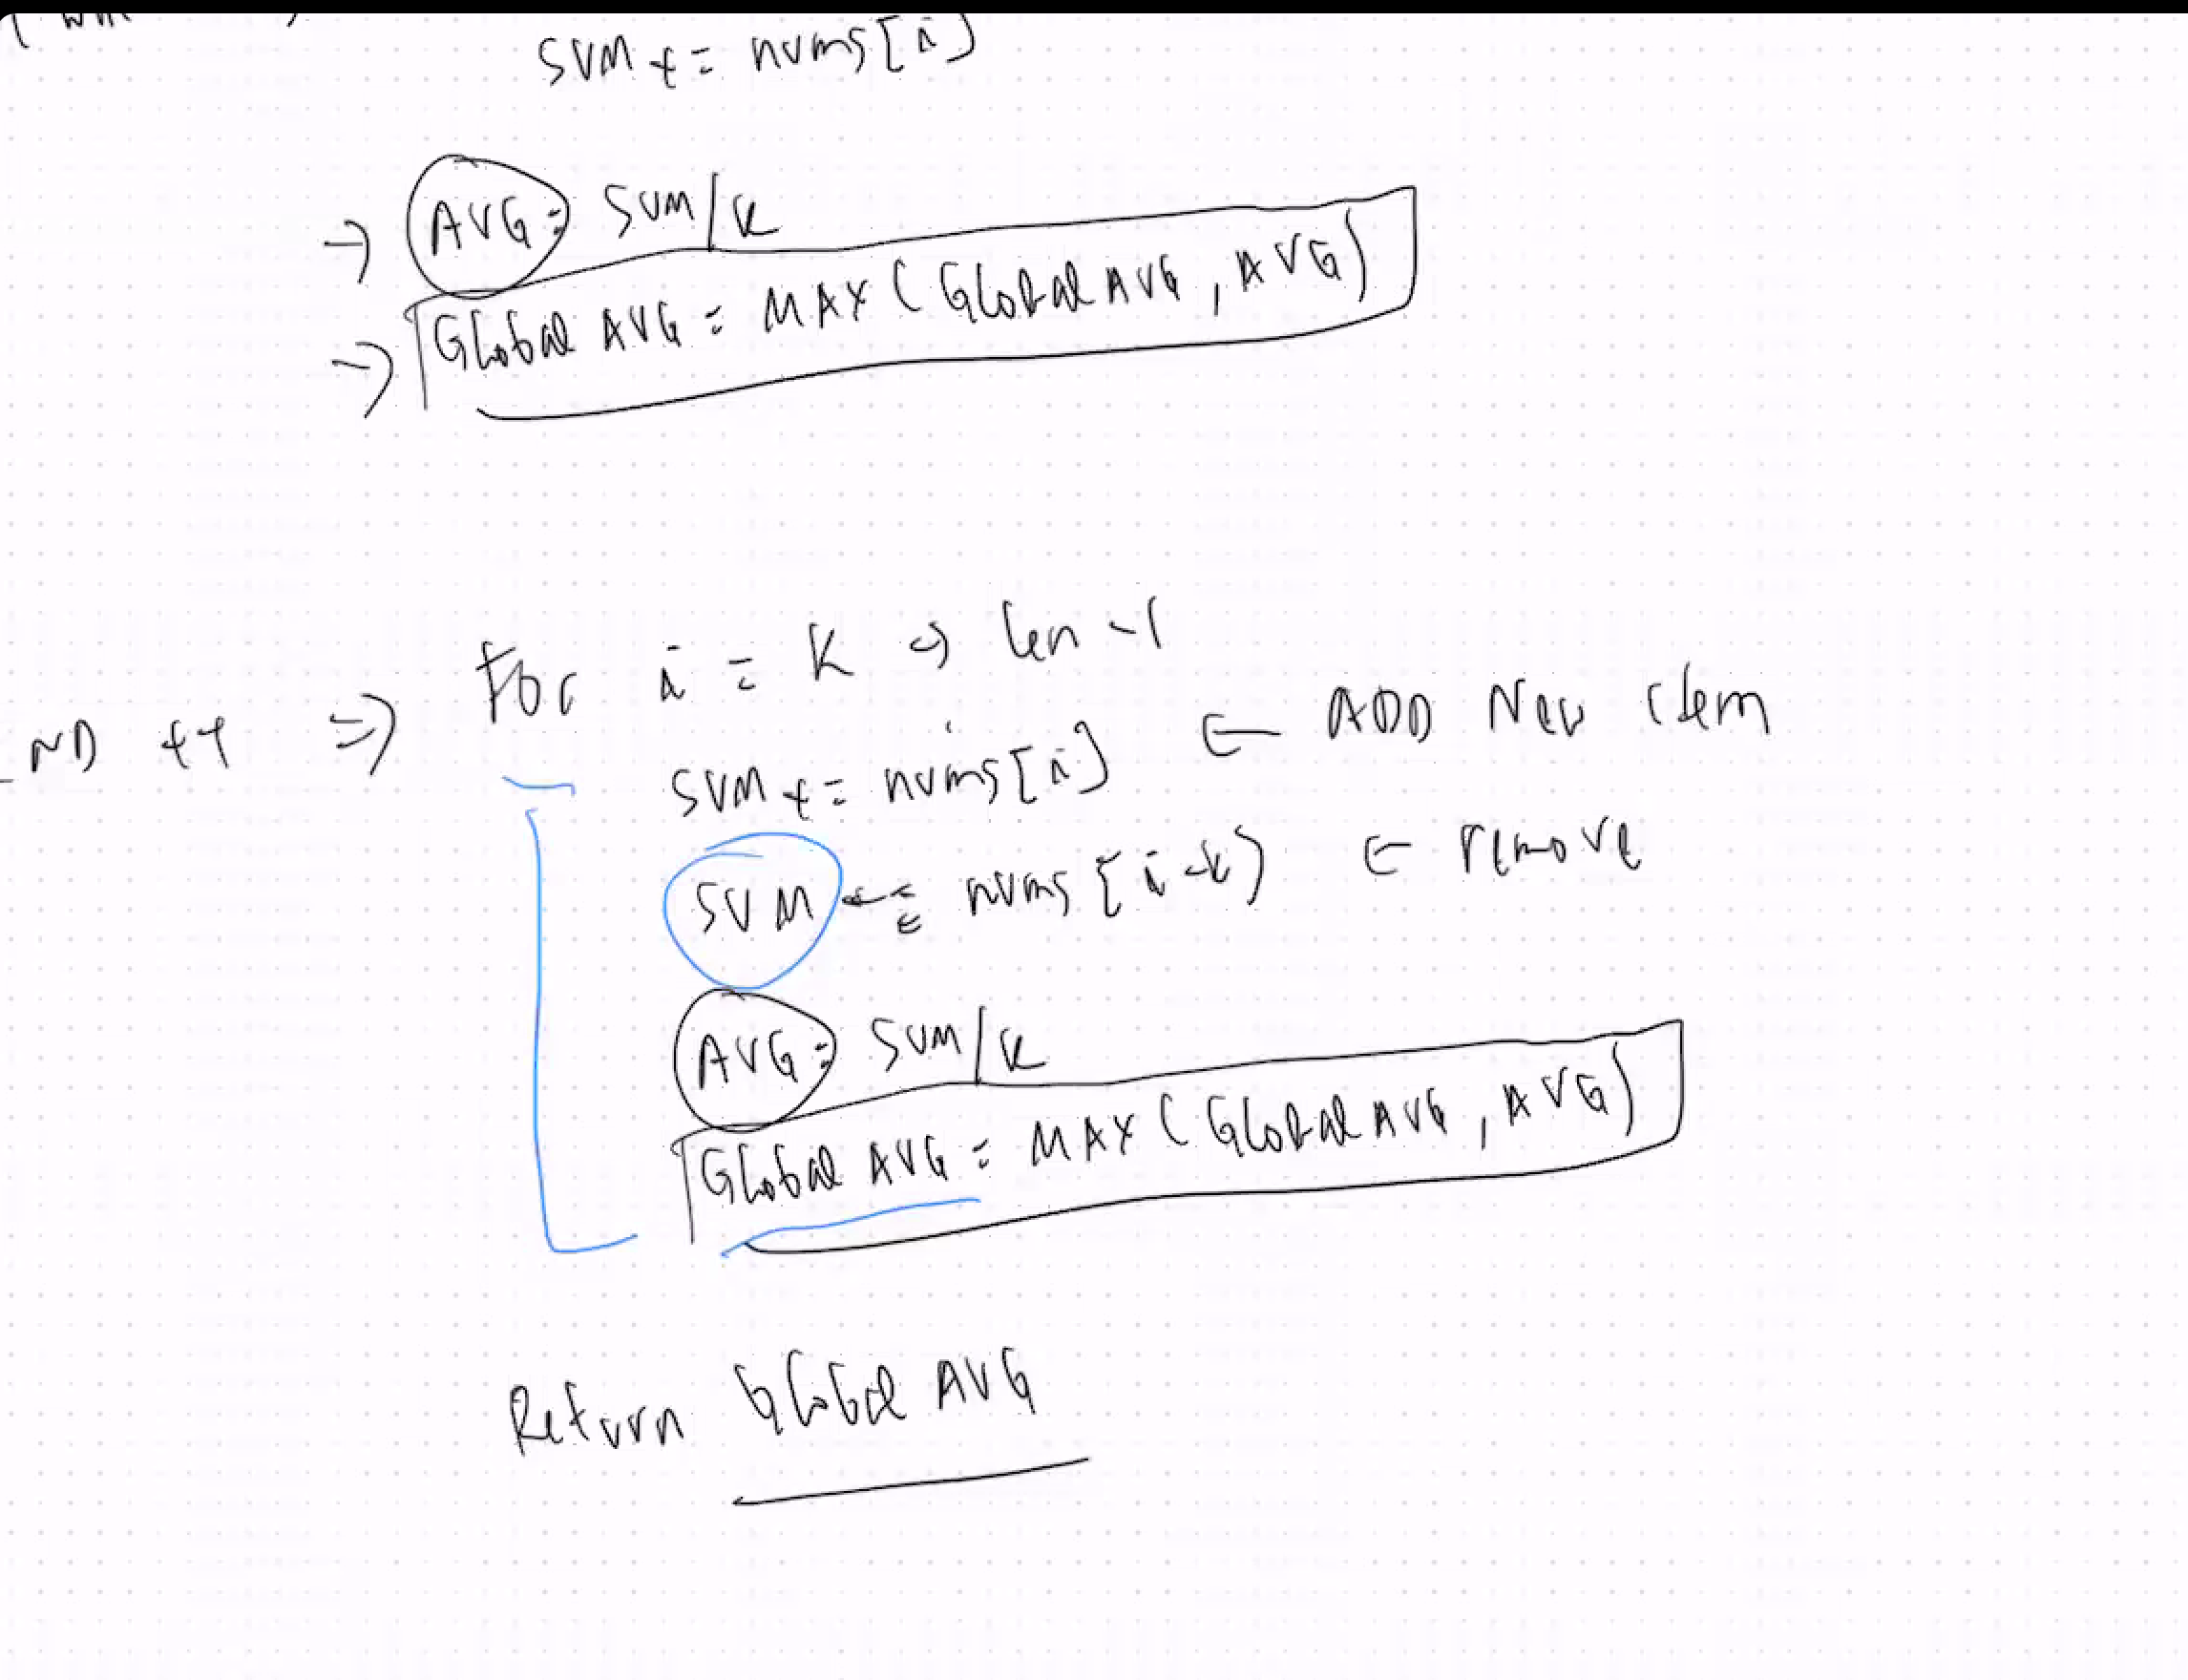 SUM += nums[i]
→ AVG = SUM/K
→ Global AVG = MAX(Global AVG, AVG)
For i = K → len -1
ND ++ ⇒ SUM += nums[i] ← ADD New elem
SUM -= nums[i-k] ← remove
AVG = SUM/K
Global AVG = MAX(Global AVG, AVG)
Return Global AVG